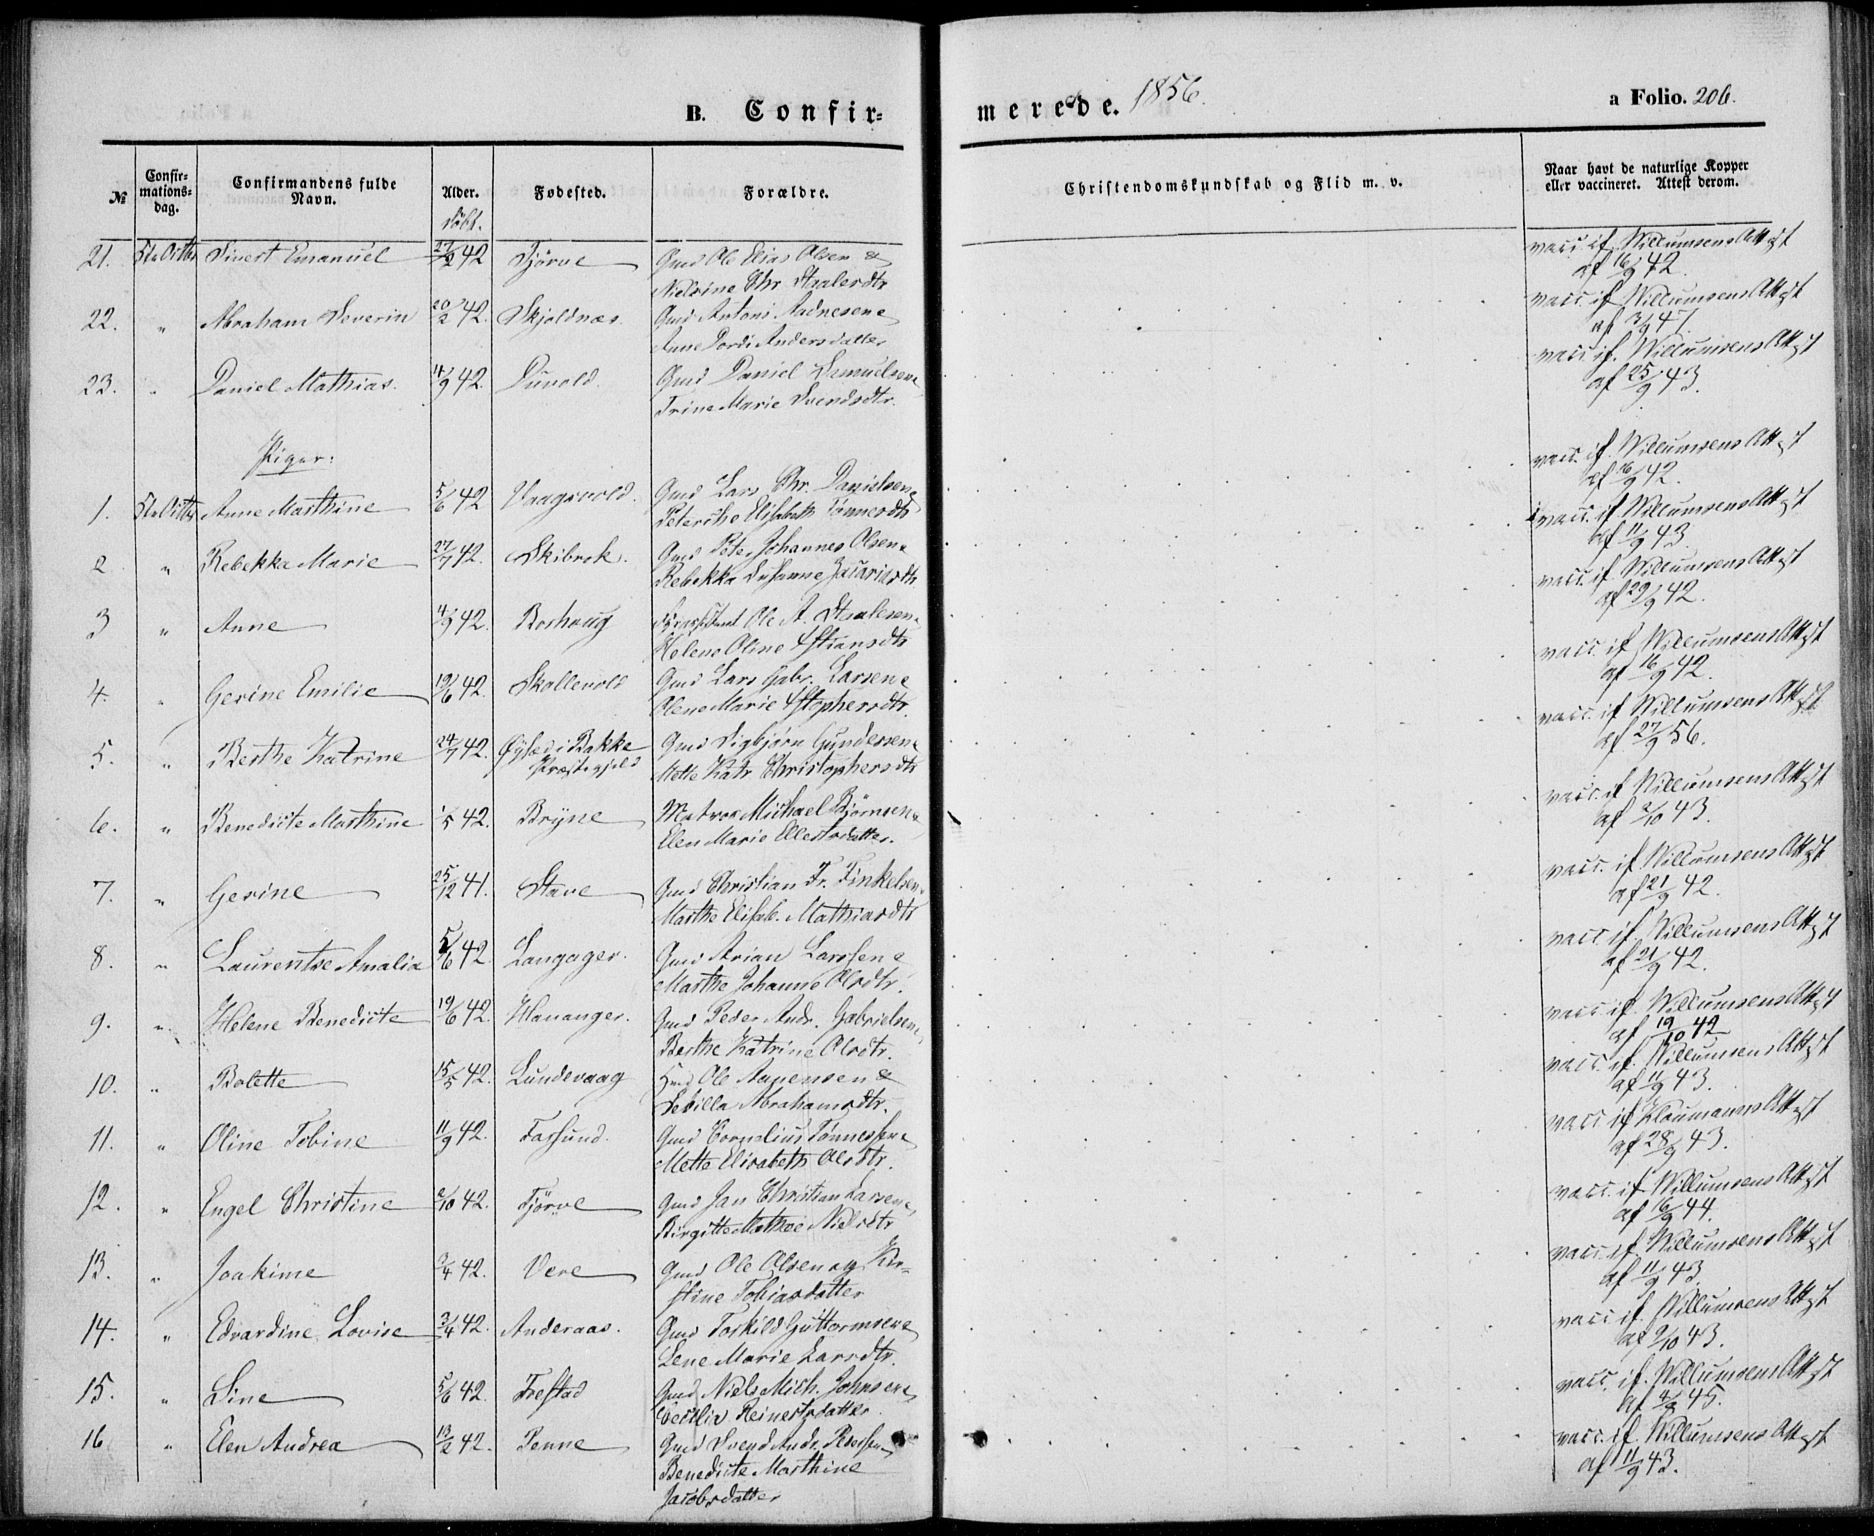 B. Confir=
merede. 1856.
a Folio. 206.
№
Confir-
mations-
dag.
Confirmandens fulde
Navn.
Alder.
døbt.
Fødested.
Forældre.
Christendomskundskab og Flid m. v.
Naar havt de naturlige Kopper
eller vaccineret. Attest derom.
21. 5te Octbr Sivert Emanuel 27/2 42 Tjörve Gmd Ole Elias Olsen &
Nielsine Chr. Staalesdtr
vacc. if. Willumsens Attest
af 16/9 42.
22. " Abraham Severin 20/2 42. Skjoldnæs. Gmd Antoni Aadnesen &
Anne Tordi Andersdatter
vacc. if. Willumsens Attest
af 3/9 47.
23. " Daniel Mathias. 4/9 42. Duvold. Gmd Daniel Samuelsen &
Trine Marie Svendsdtr.
vacc. if. Willumsens Attest
af 25/9 43.
Piger:
1. 5te Octbr Anne Marthine 5/6 42 Vaagsvold. Gmd Lars Chr. Danielsen &
Elisabeth Tønnesdtr
vacc. if. Willumsens Attest
af 16/9 42.
2 " Rebekka Marie 27/7 42. Skibrok. Gmd Peter Johannes Olsen &
Rebekka Susanne Zacariasdtr
vacc. if. Willumsens Attest
af 11/9 43
3 " Anne 4/9 42. Boshoug Ole A. Staalesen &
Helene Oline Xstiansdtr
vacc. if. Willumsens Attest
af 29/9 42.
4. " Gerine Emilie 19/6 42. Skollevold Gmd Lars Gabr. Larsen &
Olene Marie Xstophersdtr.
vacc. if. Willumsens Attest
af 16/9 42.
5. " Berthe Katrine 24/7 42. Øysæd i Bakke
Præstegjeld Gmd Sigbjørn Gundersen &
Mette Katr. Christophersdtr
vacc. if. Willumsens Attest
af 27/9 56.
6. " Benedicte Marthine 1/5 42. Bryne Matros Michael Björnsen &
Elen Marie Ellertsdatter.
vacc. if. Willumsens Attest
af 2/10 43.
7. " Gerine 25/12 41. Stave Gmd Christian Fr. Finkelsen &
Marthe Elisab. Mathiasdtr
vacc. if. Willumsens Attest
af 21/9 42.
8. " Laurentse Amalia 5/6 42. Langager. Gmd Arian Larssen &
Marthe Johanne Olsdtr.
vacc. if. Willumsens Attest
af 21/9 42.
9. " Helene Benedicte 19/6 42. Hananger. Gmd Peder Andr. Gabrielsen &
Berthe Katrine Olsdtr.
vacc. if. Willumsens Attest
af 19/10 42
10. " Bolette 15/5 42. Lundevaag Ole Aanensen &
Sebilla Abrahamsdtr.
vacc. if. Willumsens Attest
af 11/9 43.
11. " Oline Tobine 11/9 42. Farsund. Gmd Cornelius Tønnessen &
Mette Elisabeth Olsdtr.
vacc. if. Attest
af 28/9 43.
12. " Engel Christine 2/10 42. Tjörve Gmd Jan Christian Larsen &
Birgitte Mathea Nielsdtr
vacc. if. Willumsens Attest
af 16/9 44.
13. " Joakime 3/4 42. Vere Gmd Ole Olsen og Kir-
stine Tobiasdatter
vacc. if. Willumsens Attest
af 11/9 43.
14. " Edvardine Lovise 3/4 42. Anderaas. Gmd Torkild Guttormsen &
Lene Marie Larsdtr.
vacc. if. Willumsens Attest
af 9/10 43.
15. " Sine 5/6 42. Frestad Gmd Niels Mich. Johnsen &
Cecilia Reinertsdatter
vacc. if. Willumsens Attest
af 4/9 45.
16 " Elen Andrea 13/2 42. Penne Gmd Svend Andr. Pedersen &
Benedicte Marthine
Jacobsdatter
vacc. if. Willumsens Attest
af 11/9 43.